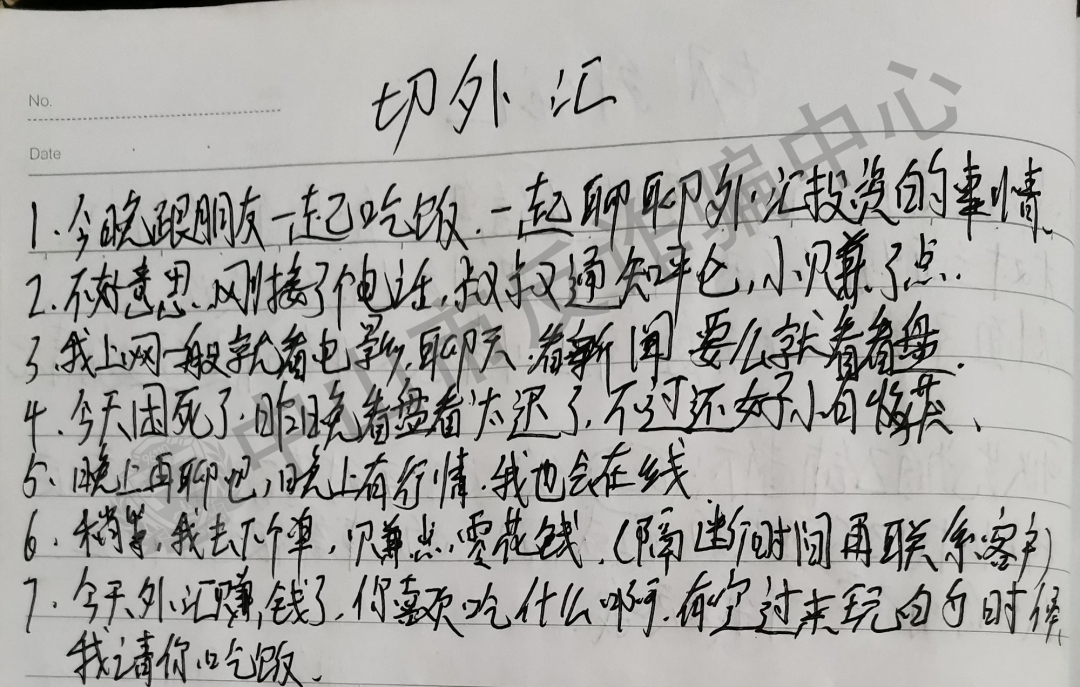 No.
Date
切外汇
1.今晚跟朋友一起吃饭.一起聊聊外汇投资的事情.
2.不好意思.刚接了个电话,叔叔通知平仓,小赚了点.
3.我上网一般就看电影,聊天.看新闻 要么就看看盘.
4.今天困死了.昨晚看盘看太迟了,不过还好小有收获、
5、晚上再聊吧,晚上有行情.我也会在线.
6、稍等,我去下个单,赚点零花钱.(隔断时间再联系客户)
7.今天外汇赚钱了.你喜欢吃什么啊.有空过来玩的时候
我请你吃饭.
中山市反诈骗中心